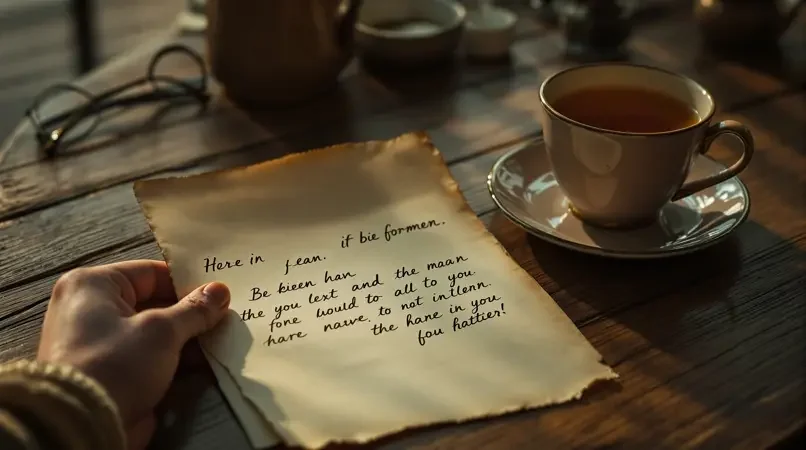 Here in fean. if bie formen.
Be kieen han
the you lext and the maan
fone would to all to you.
hare nauve, to not intlenn
the hane in you
fou hattier!